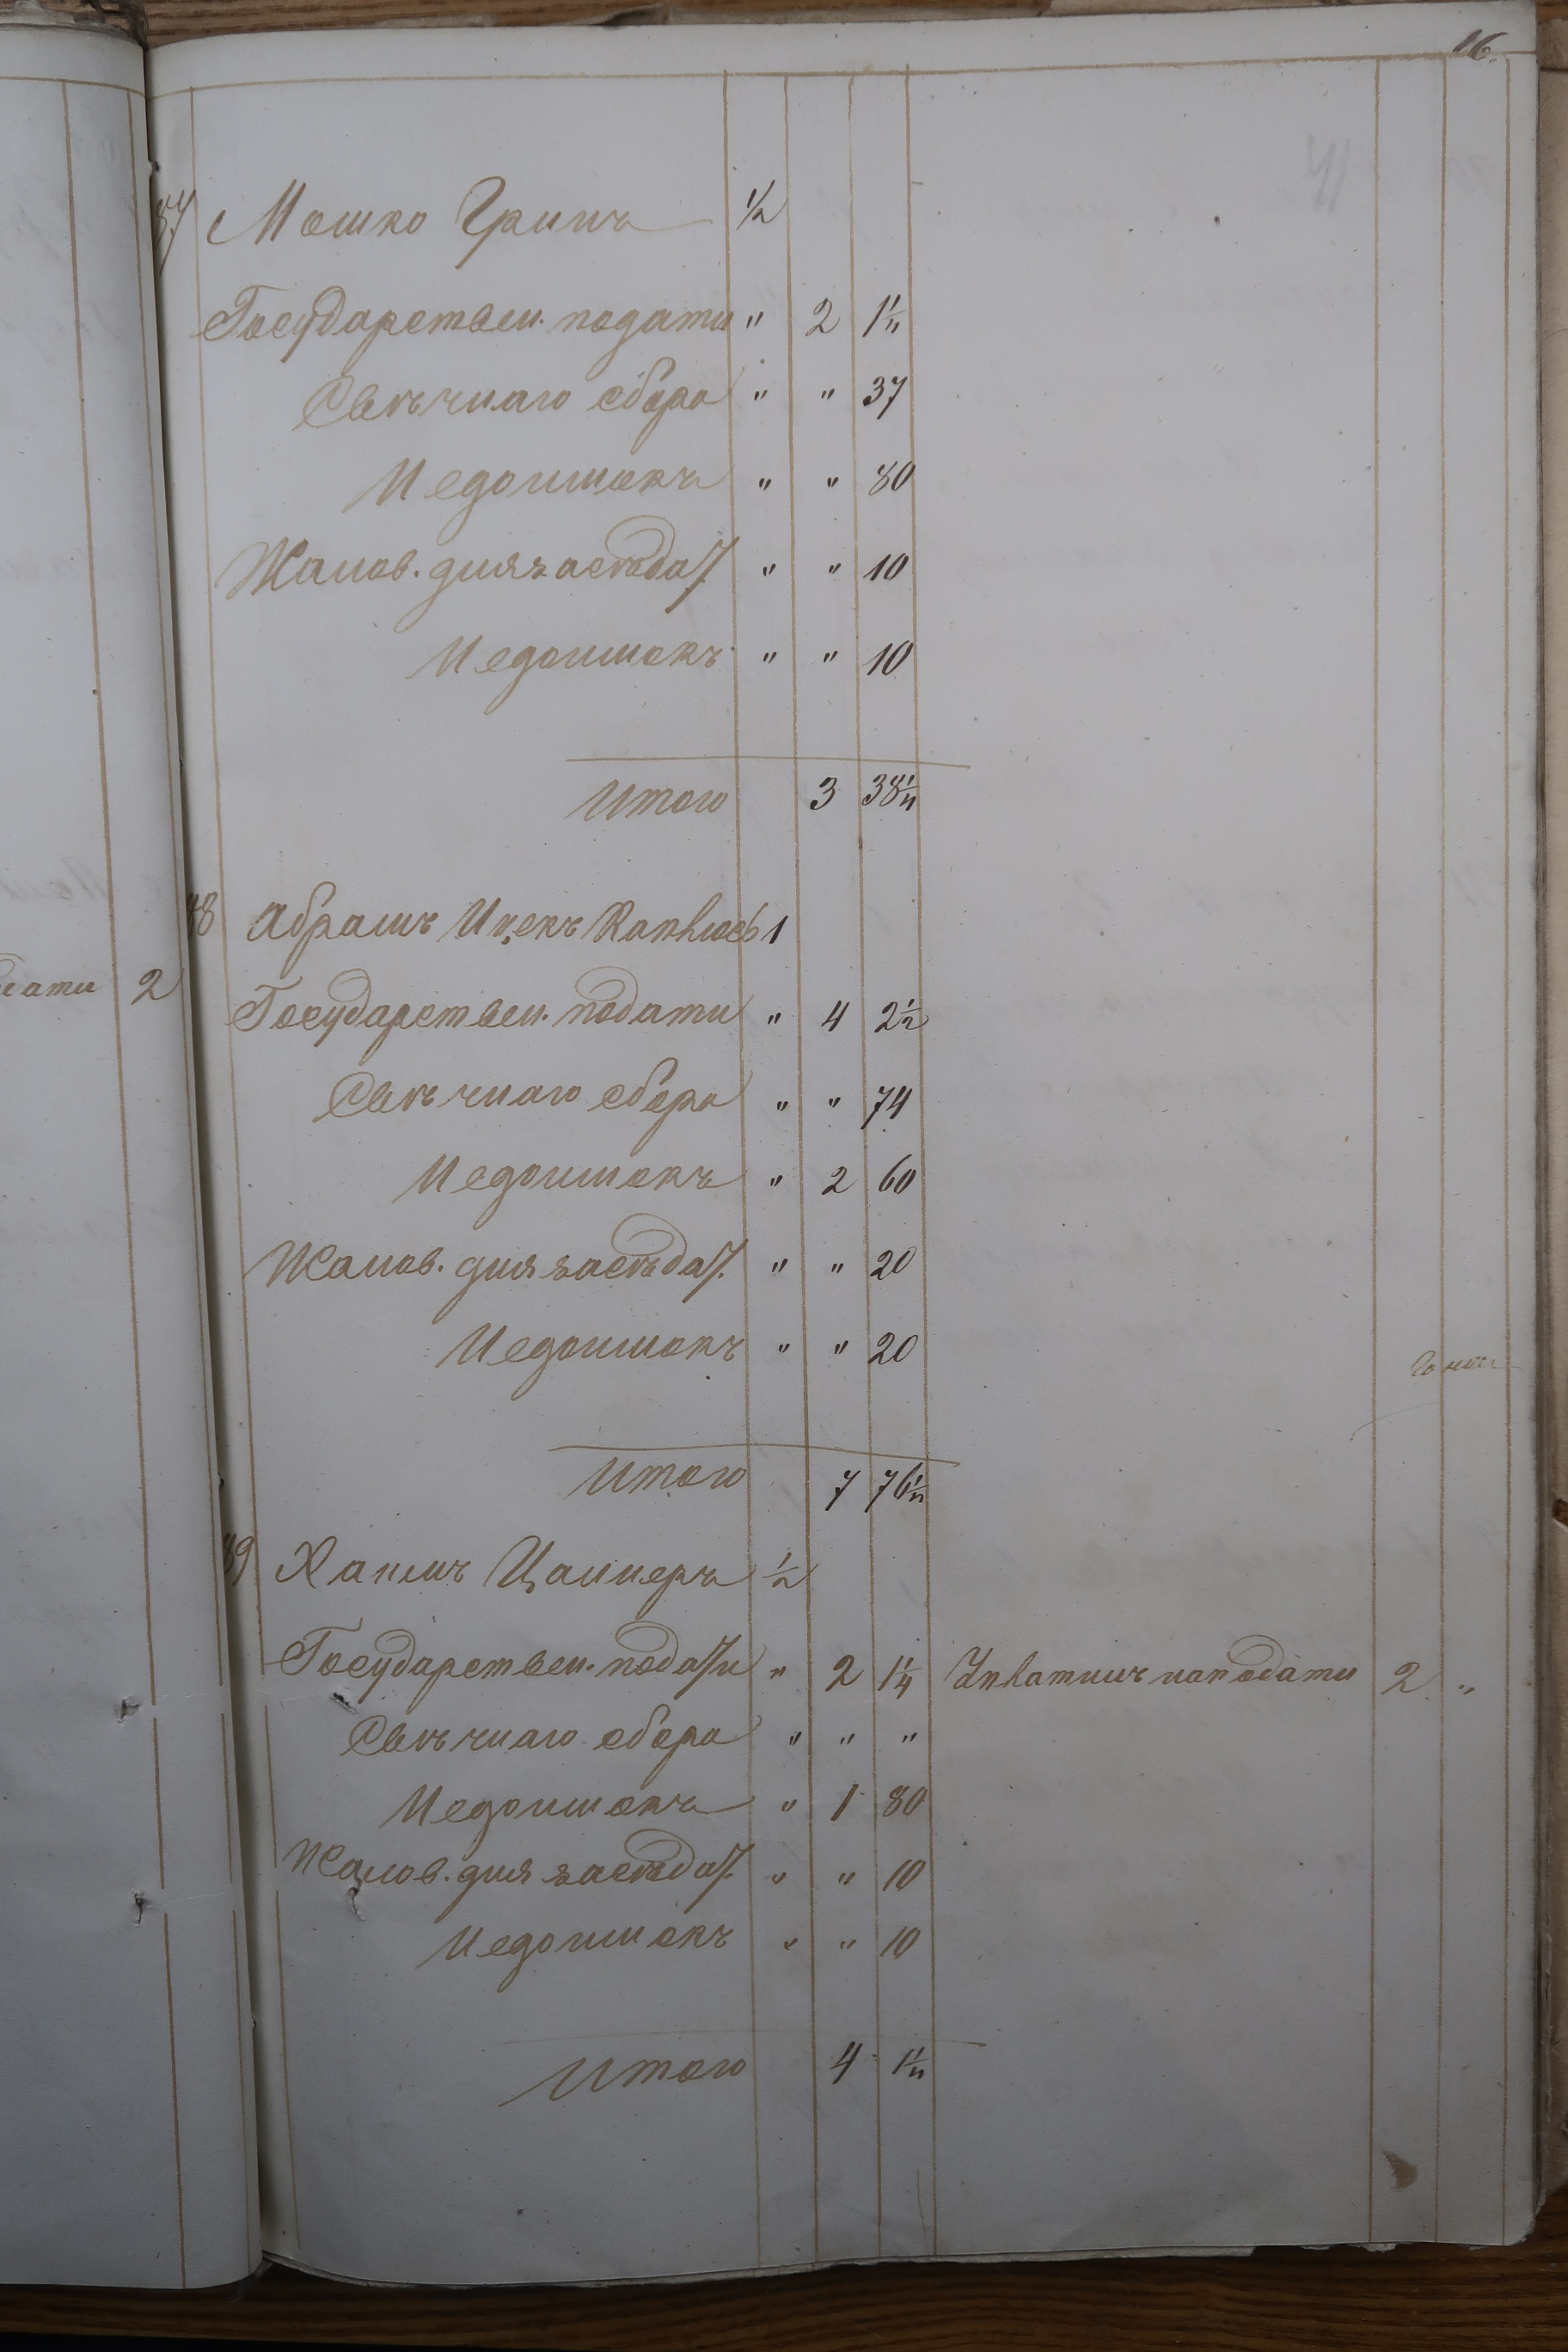 16.
41
87 Мошко Гринъ 1/2
Государствен. подати " 2 1 1/4
Свѣчнаго сбора " " 37
Недоимокъ " " 80
Жалов. для засѣдат. " " 10
Недоимокъ " " 10
Итого 3 38 1/4
88 Абрамъ Ицекъ 1
Государствен. подати " 4 2 1/2
Свѣчнаго сбора " " 74
Недоимокъ " 2 60
Жалов. для засѣдат. " " 20
Недоимокъ " " 20
Итого 7 76 1/2
89 Хаимъ Цаллеръ 1/2
Государствен. подати " 2 1 1/4 Уплатилъ на подати 2 "
Свѣчнаго сбора " " "
Недоимокъ " 1 80
Жалов. для засѣдат. " " 10
Недоимокъ " " 10
Итого 4 1 1/4